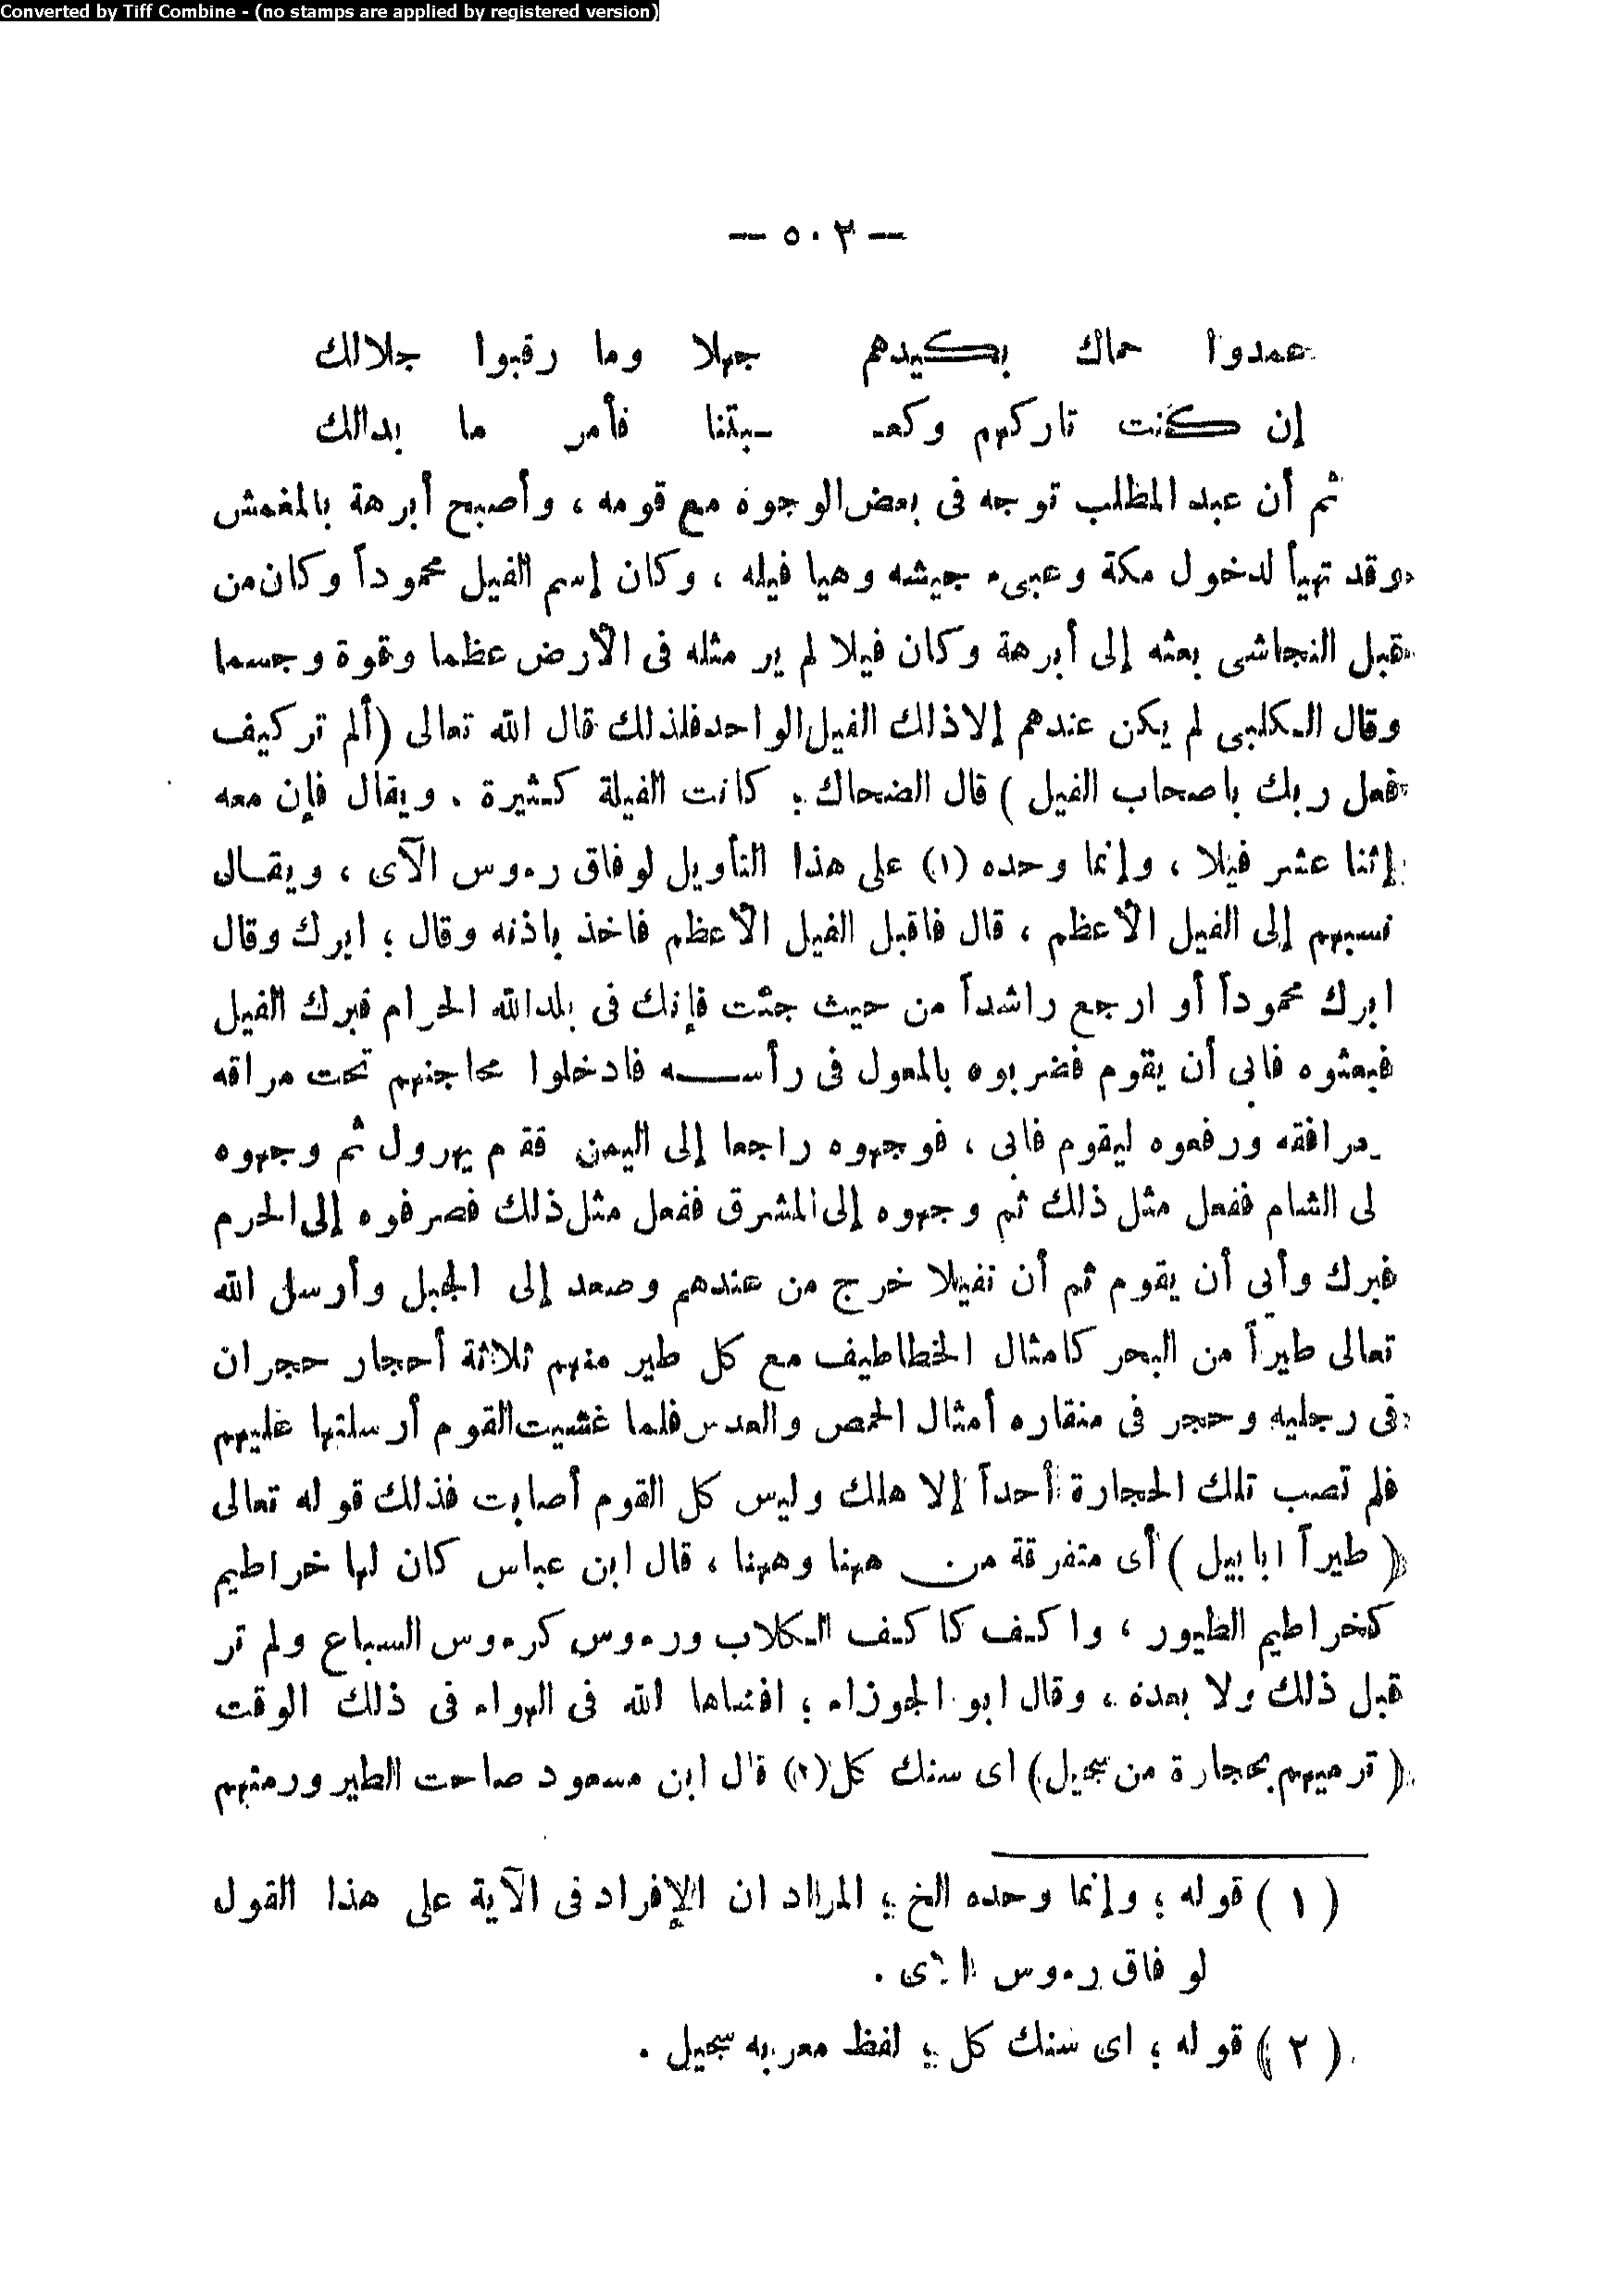 Converted by Tiff Combine - (no stamps are applied by registered version)
— ٥٠٢ —
عمدوا حماك بكيدهم جهلا وما رقبوا جلالك
إن كنت تاركهم وكعـ ـبتنا فأمر ما بدالك
ثم أن عبد المطلب توجه فى بعض الوجوه مع قومه ، وأصبح أبرهة بالمغمش
وقد تهيأ لدخول مكة وعبىء جيشه وهيا فيله ، وكان إسم الفيل محموداً وكان من
قبل النجاشى بعثه إلى أبرهة وكان فيلا لم ير مثله فى الأرض عظما وقوة وجسما
وقال الكلبى لم يكن عندهم إلا ذلك الفيل الواحد فلذلك قال الله تعالى (ألم تر كيف
فعل ربك باصحاب الفيل ) قال الضحاك : كانت الفيلة كثيرة . ويقال فإن معه
إثنا عشر فيلا ، وإنما وحده (١) على هذا التأويل لوفاق رءوس الآى ، ويقال
نسبهم إلى الفيل الأعظم ، قال فاقبل الفيل الأعظم فاخذ باذنه وقال ؛ ابرك وقال
ابرك محموداً أو ارجع راشداً من حيث جئت فإنك فى بلد الله الحرام فبرك الفيل
فبعثوه فابى أن يقوم فضربوه بالمعول فى رأسه فادخلوا محاجنهم تحت مراقه
مرافقه ورفعوه ليقوم فابى ، فوجهوه راجعا إلى اليمن فقام يهرول ثم وجهوه
لى الشام ففعل مثل ذلك ثم وجهوه إلى المشرق ففعل مثل ذلك فصرفوه إلى الحرم
فبرك وأبى أن يقوم ثم أن نفيلا خرج من عندهم وصعد إلى الجبل وأرسل الله
تعالى طيراً من البحر كامثال الخطاطيف مع كل طير منهم ثلاثة أحجار حجران
فى رجليه وحجر فى منقاره أمثال الحمص والعدس فلما غشيت القوم أرسلتها عليهم
فلم تصب تلك الحجارة أحداً إلا هلك وليس كل القوم أصابت فذلك قوله تعالى
( طيراً ابابيل ) أى متفرقة من ههنا وههنا ، قال ابن عباس كان لها خراطيم
كخراطيم الطيور ، واكف كاكف الكلاب ورءوس كرءوس السباع ولم تر
قبل ذلك ولا بعده ، وقال ابو الجوزاء ؛ افشاها الله فى الهواء فى ذلك الوقت
( ترميهم بحجارة من سجيل ) اى سنك كل (٢) قال ابن مسعود صاحت الطير ورمتهم
( ١ ) قوله ؛ وإنما وحده الخ ؛ المراد ان الإفراد فى الآية على هذا القول
لوفاق رءوس الآى .
( ٢ ) قوله ؛ اى سنك كل ؛ لفظ معربه سجيل .